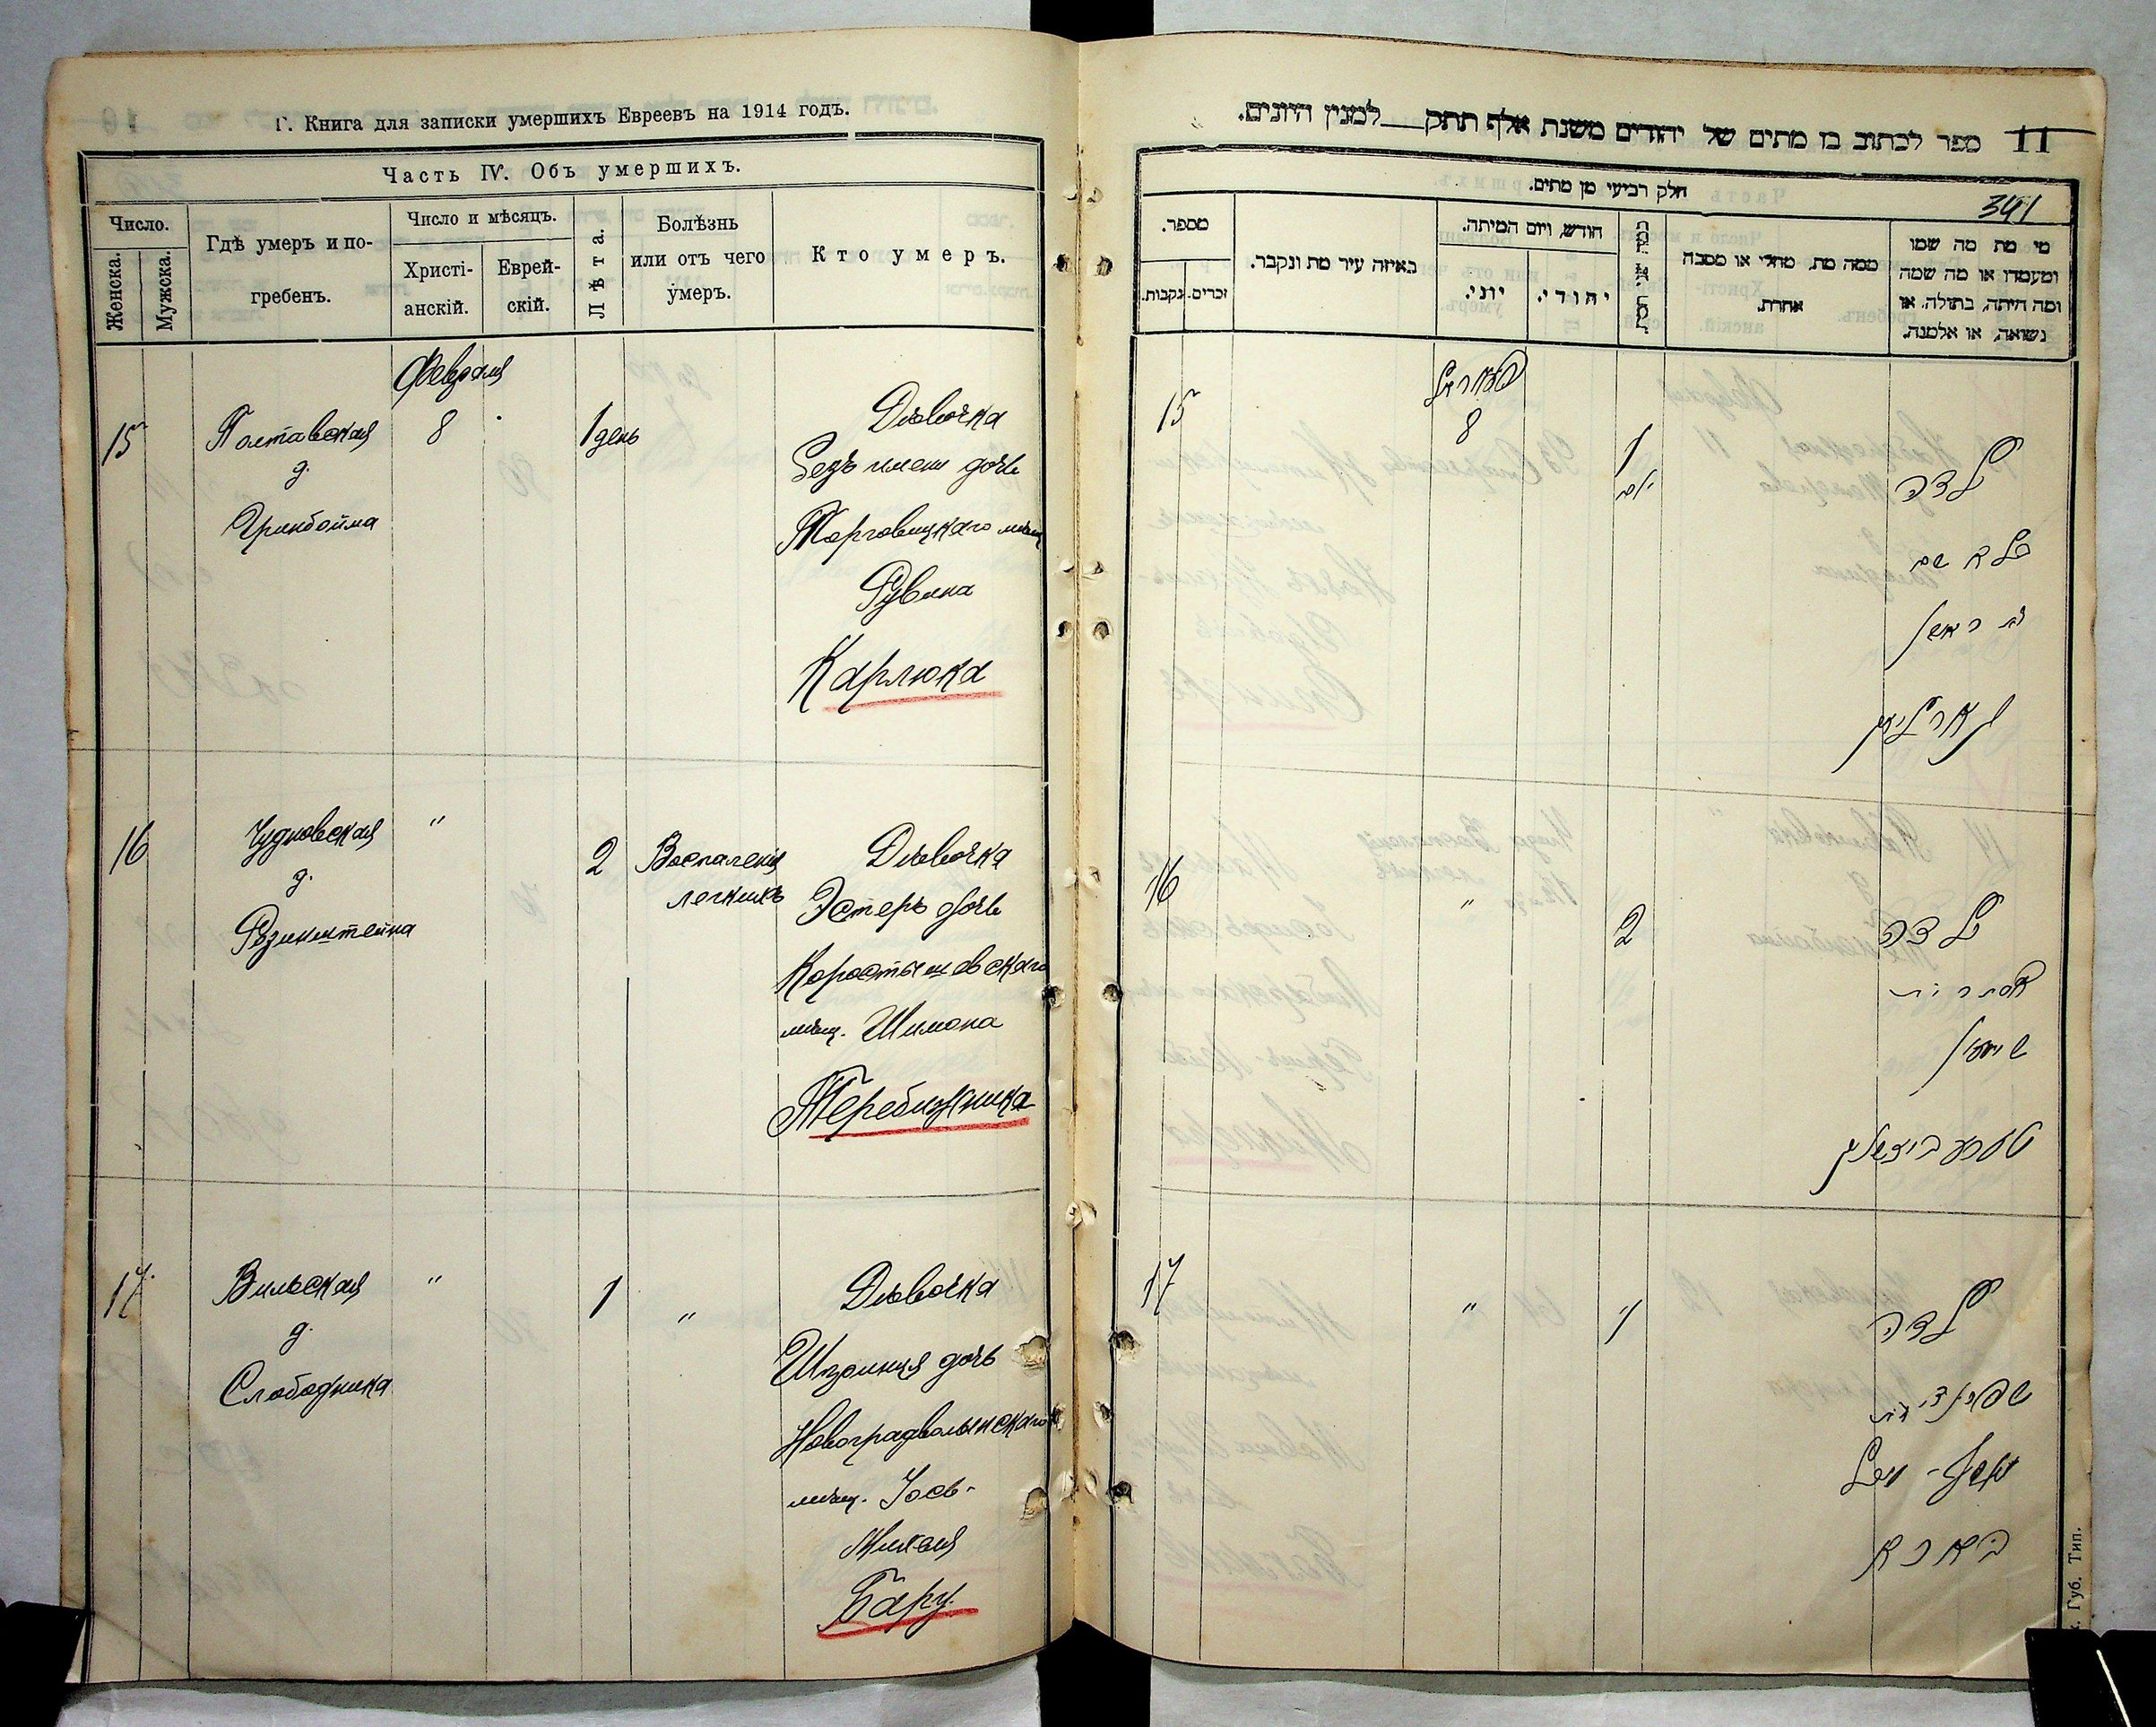 Г. Книга для записки умершихъ Евреевъ на 1914 годъ.
Часть IV. Объ умершихъ.
Число.
Женска.
Мужска.
Гдѣ умеръ и по-
гребенъ.
Число и мѣсяцъ.
Христі-
анскій.
Еврей-
скій.
Лѣта.
Болѣзнь
или отъ чего
умеръ.
Кто умеръ.
Февраля
15
Полтавская
д.
Гринбойма
8
1 день
Дѣвочка
безъ имени дочь
Торговицкаго мѣщ
Рувина
Карлюка
16
Чудновская
д.
Розинштейна
"
2
Воспаленія
легкихъ
Дѣвочка
Эстеръ дочь
Коростышевскаго
мѣщ. Шимона
Теребижника
17
Вильская
д.
Слободника
"
1
"
Дѣвочка
Шпринця дочь
Новоградволынскаго
мѣщ. Іось-
Михеля
Бару
11 ספר לכתוב בו מתים של יהודים משנת אלף תתק למנין היונים.
חלק רביעי מן מתים.
341
מספר.
נקבות.
זכרים.
באיזה עיר מת ונקבר.
חודש, ויום המיתה.
יוני.
יהודי.
ממה מת, מחלי או מסבה
אחרת.
מי מת מה שמו
ומעמדו או מה שמה
ומה היתה, בתולה, או
נשואה, או אלמנה.
15
פעבראל
8
1
יום
ילדה
בלא שם
בת ראובן
קארליוק
16
"
2
ילדה
אסתר בת
שימון
17
"
1
ילדה
שפרינצי בת
יוסף-
בארא
Губ. Тип.